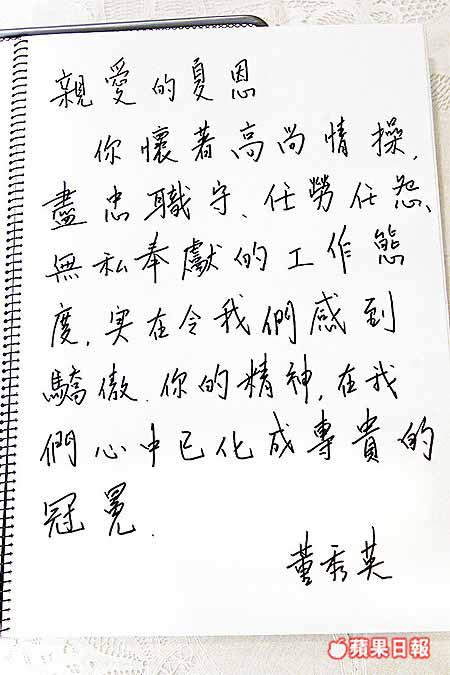 親愛的夏恩
你懷著高尚情操,
盡忠職守、任勞任怨、
無私奉獻的工作態
度,实在令我們感到
驕傲.你的精神,在我
們心中已化成專貴的
冠冕.
董秀英
蘋果日報